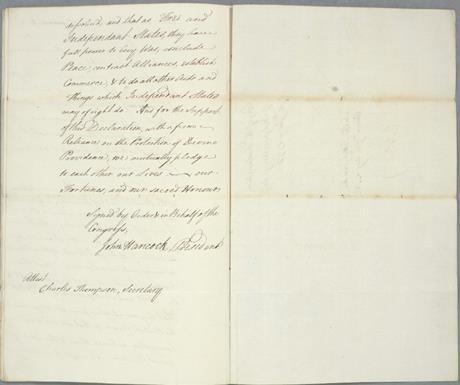 dissolved, and that as Free and
Independant States, they have
full power to levy War, conclude
Peace, contract Alliances, establish
Commerce, & to do all other Acts and
Things which Independant States
may of right do. And for the Support
of this Declaration, with a firm
Reliance on the Protection of Divine
Providence, we mutually pledge
to each other our Lives our
Fortunes, and our sacred Honour.
Signed by Order & in Behalf of the
Congress,
John Hancock, President
Attest
Charles Thompson, Secretary